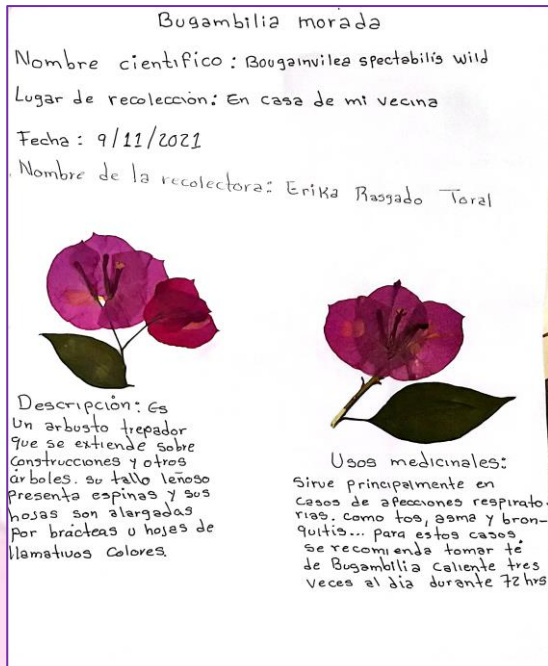 Bugambilia morada
Nombre científico: Bougainvilea spectabilis wild
Lugar de recolección: En casa de mi vecina
Fecha: 9/11/2021
Nombre de la recolectora: Erika Rasgado Toral
Descripción: Es
Un arbusto trepador
que se extiende sobre
construcciones y otros
árboles. su tallo leñoso
presenta espinas y sus
hojas son alargadas
por brácteas u hojas de
llamativos colores.
Usos medicinales:
Sirve principalmente en
casos de afecciones respirato-
rias. como tos, asma y bron-
quitis... para estos casos.
se recomienda tomar té
de Bugambilia caliente tres
veces al día durante 72 hrs